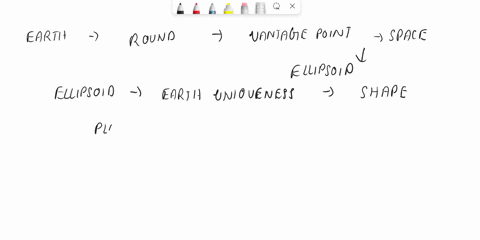 EARTH → ROUND → VANTAGE POINT → SPACE
ELLIPSOID
ELLIPSOID → EARTH UNIQUENESS → SHAPE
PL